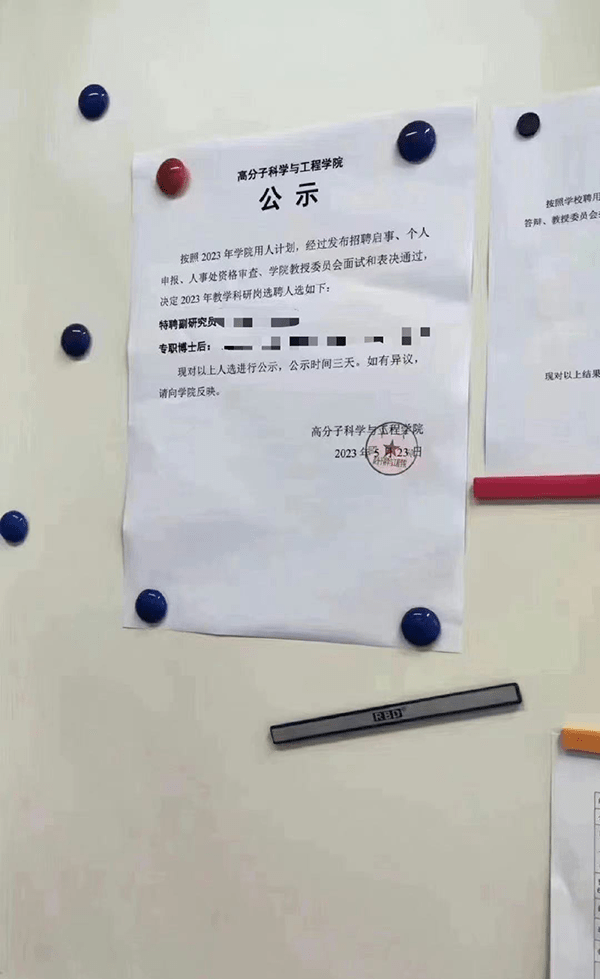 高分子科学与工程学院
公 示
按照 2023 年学院用人计划，经过发布招聘启事、个人
申报、人事处资格审查、学院教授委员会面试和表决通过，
决定 2023 年教学科研岗选聘人选如下：
特聘副研究员
专职博士后：
现对以上人选进行公示，公示时间三天。如有异议，
请向学院反映。
高分子科学与工程学院
2023 年 5 月 23 日
按照学校聘用
答辩、教授委员会
现对以上结果
RBD